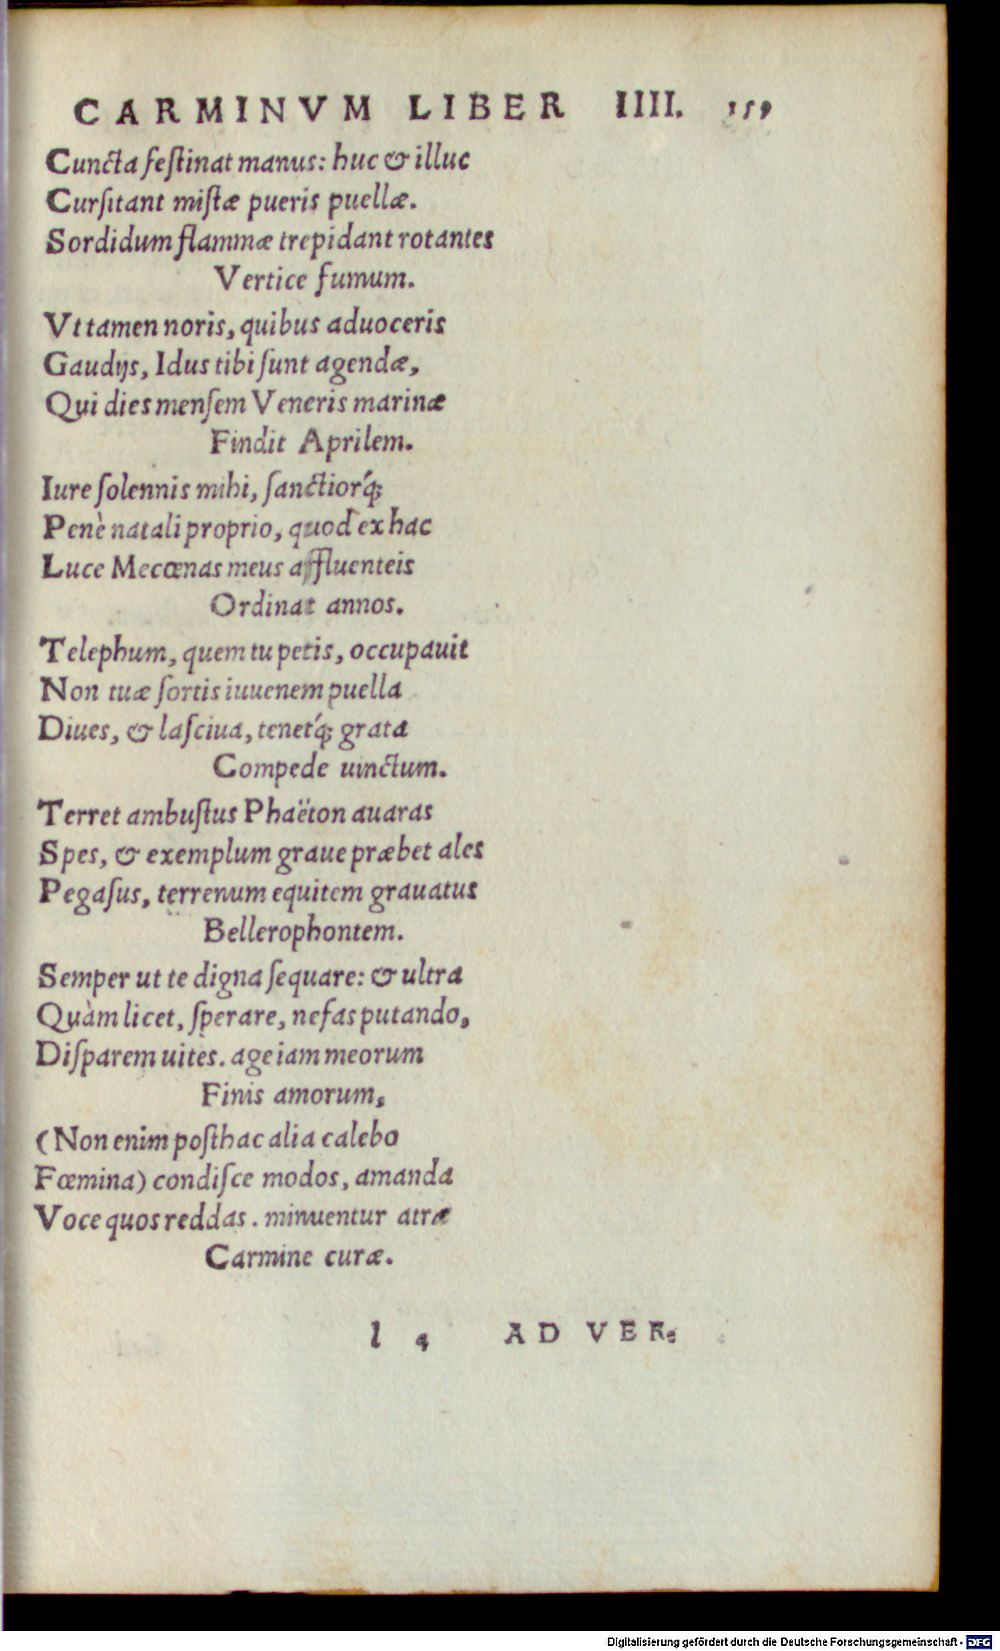 CARMINVM LIBER IIII. 159
Cuncta festinat manus: huc & illuc
Cursitant mistæ pueris puellæ.
Sordidum flammæ trepidant rotantes
Vertice fumum.
Vt tamen noris, quibus aduoceris
Gaudijs, Idus tibi sunt agendæ,
Qui dies mensem Veneris marinæ
Findit Aprilem.
Iure solennis mihi, sanctiorq́;
Penè natali proprio, quod ex hac
Luce Mecœnas meus affluenteis
Ordinat annos.
Telephum, quem tu petis, occupauit
Non tuæ sortis iuuenem puella
Diues, & lasciua, tenetq́; grata
Compede uinctum.
Terret ambustus Phaëton auaras
Spes, & exemplum graue præbet ales
Pegasus, terrenum equitem grauatus
Bellerophontem.
Semper ut te digna sequare: & ultra
Quàm licet, sperare, nefas putando,
Disparem uites. age iam meorum
Finis amorum,
(Non enim posthac alia calebo
Fœmina) condisce modos, amanda
Voce quos reddas. minuentur atræ
Carmine curæ.
l 4 AD VER:
Digitalisierung gefördert durch die Deutsche Forschungsgemeinschaft - DFG